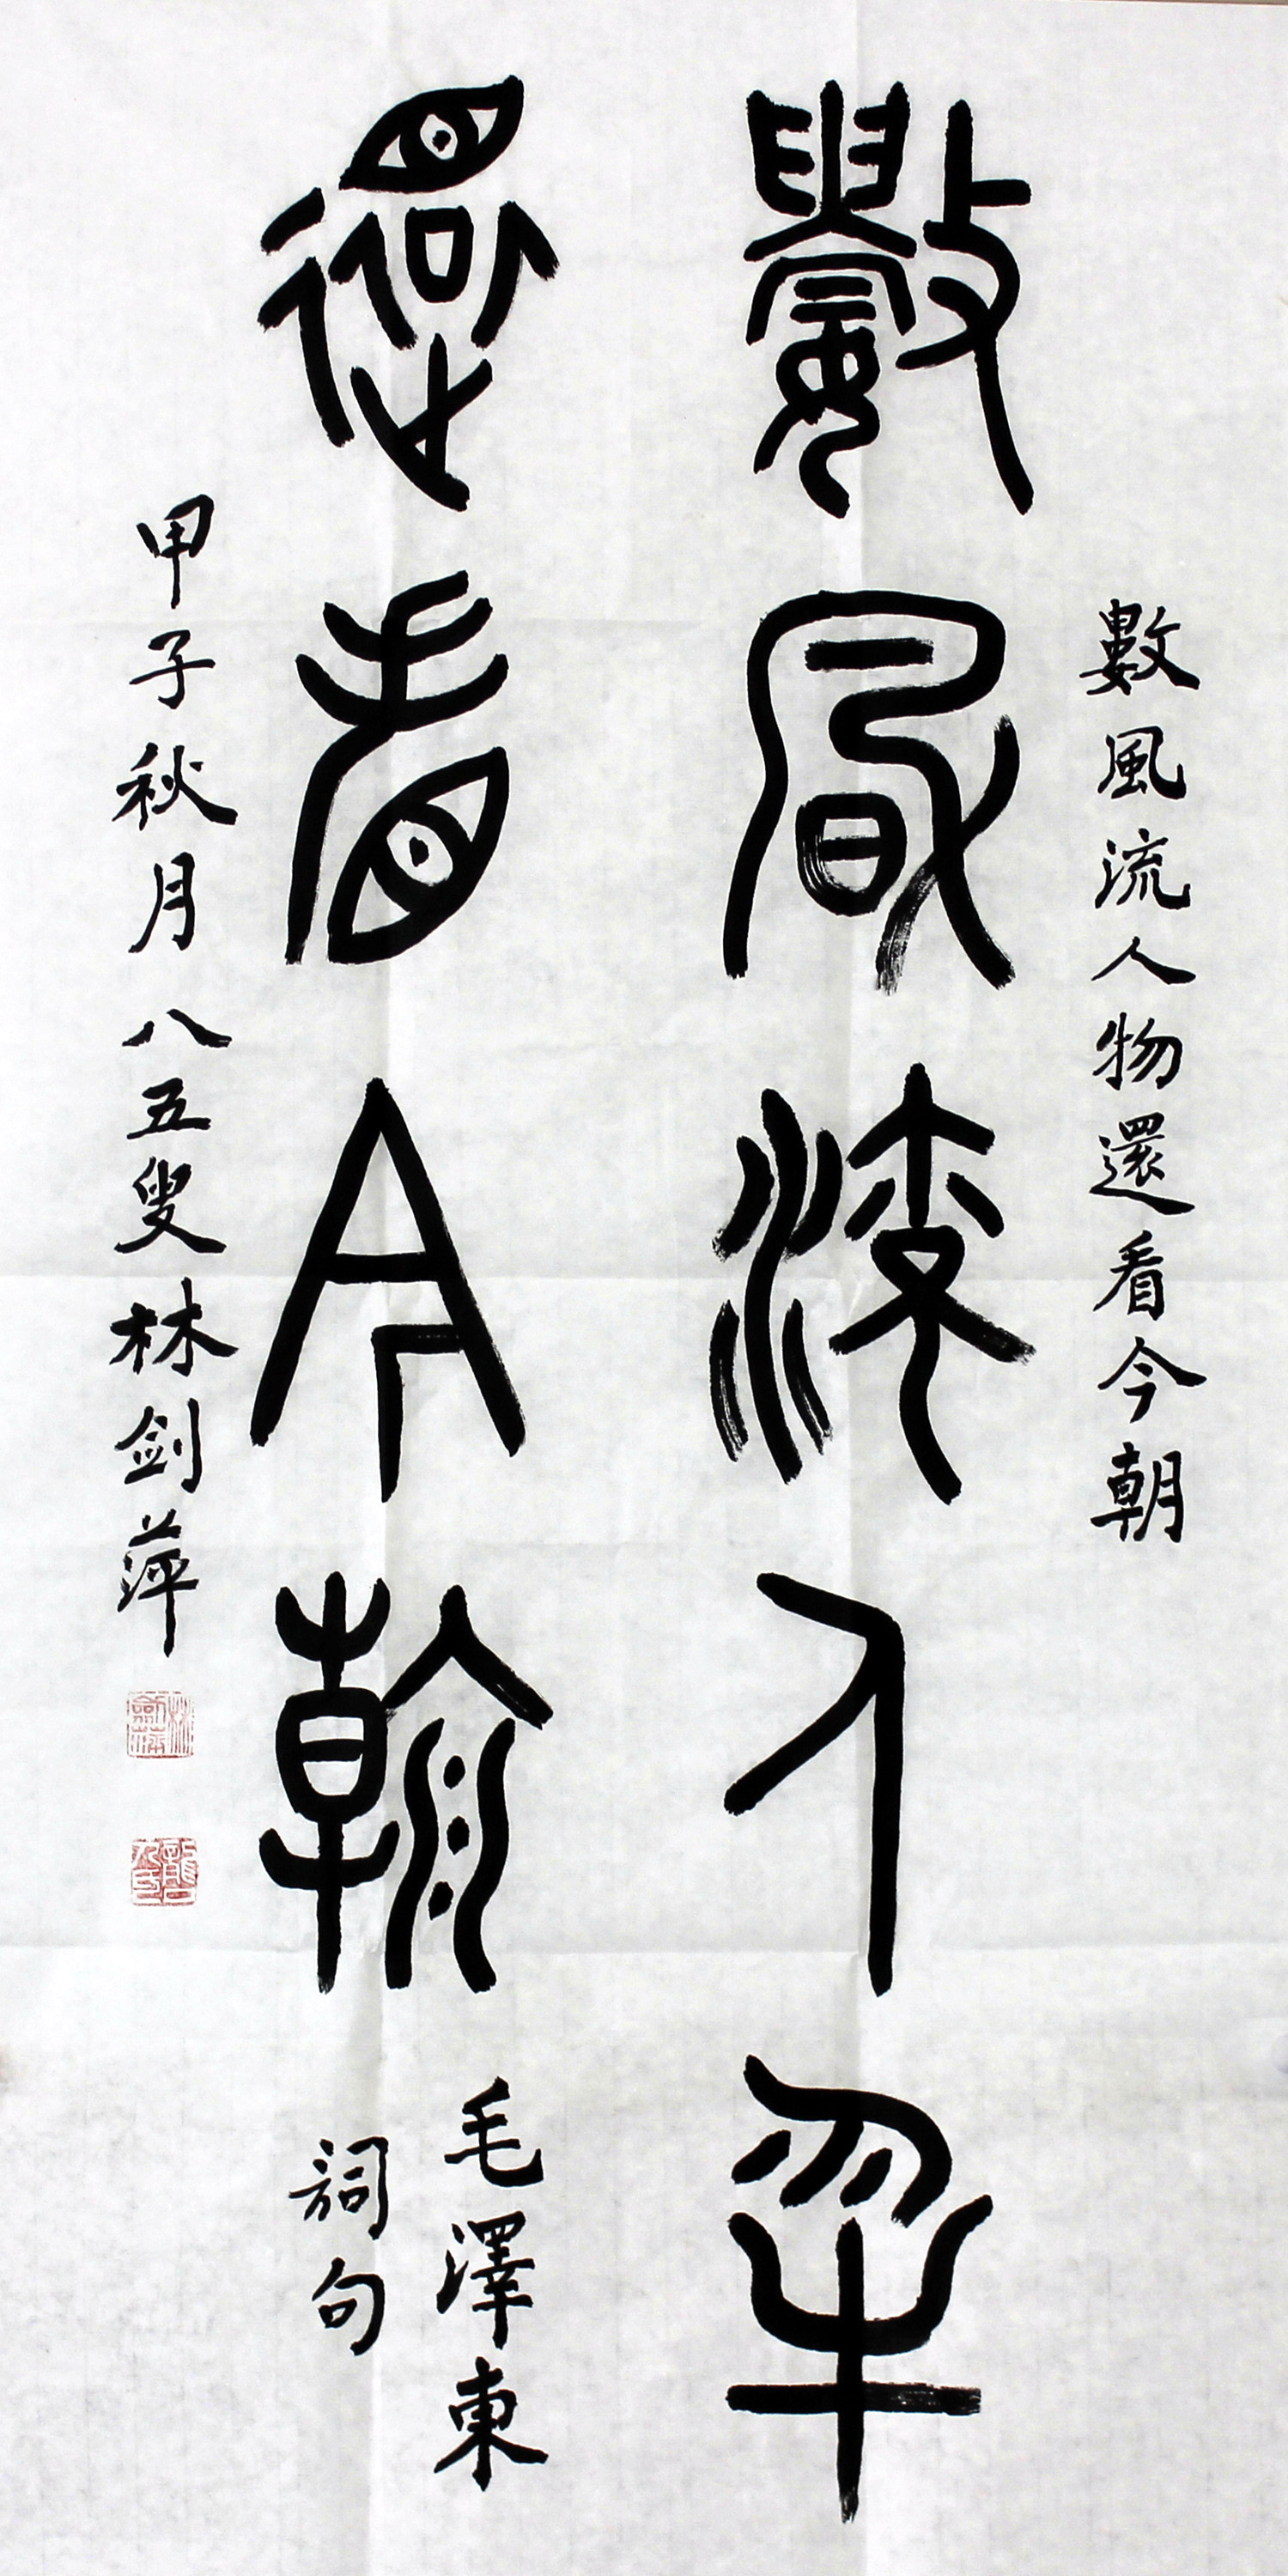 數風流人物還看今朝
數風流人物
還看今朝
毛澤東
詞句
甲子秋月八五叟林剑萍